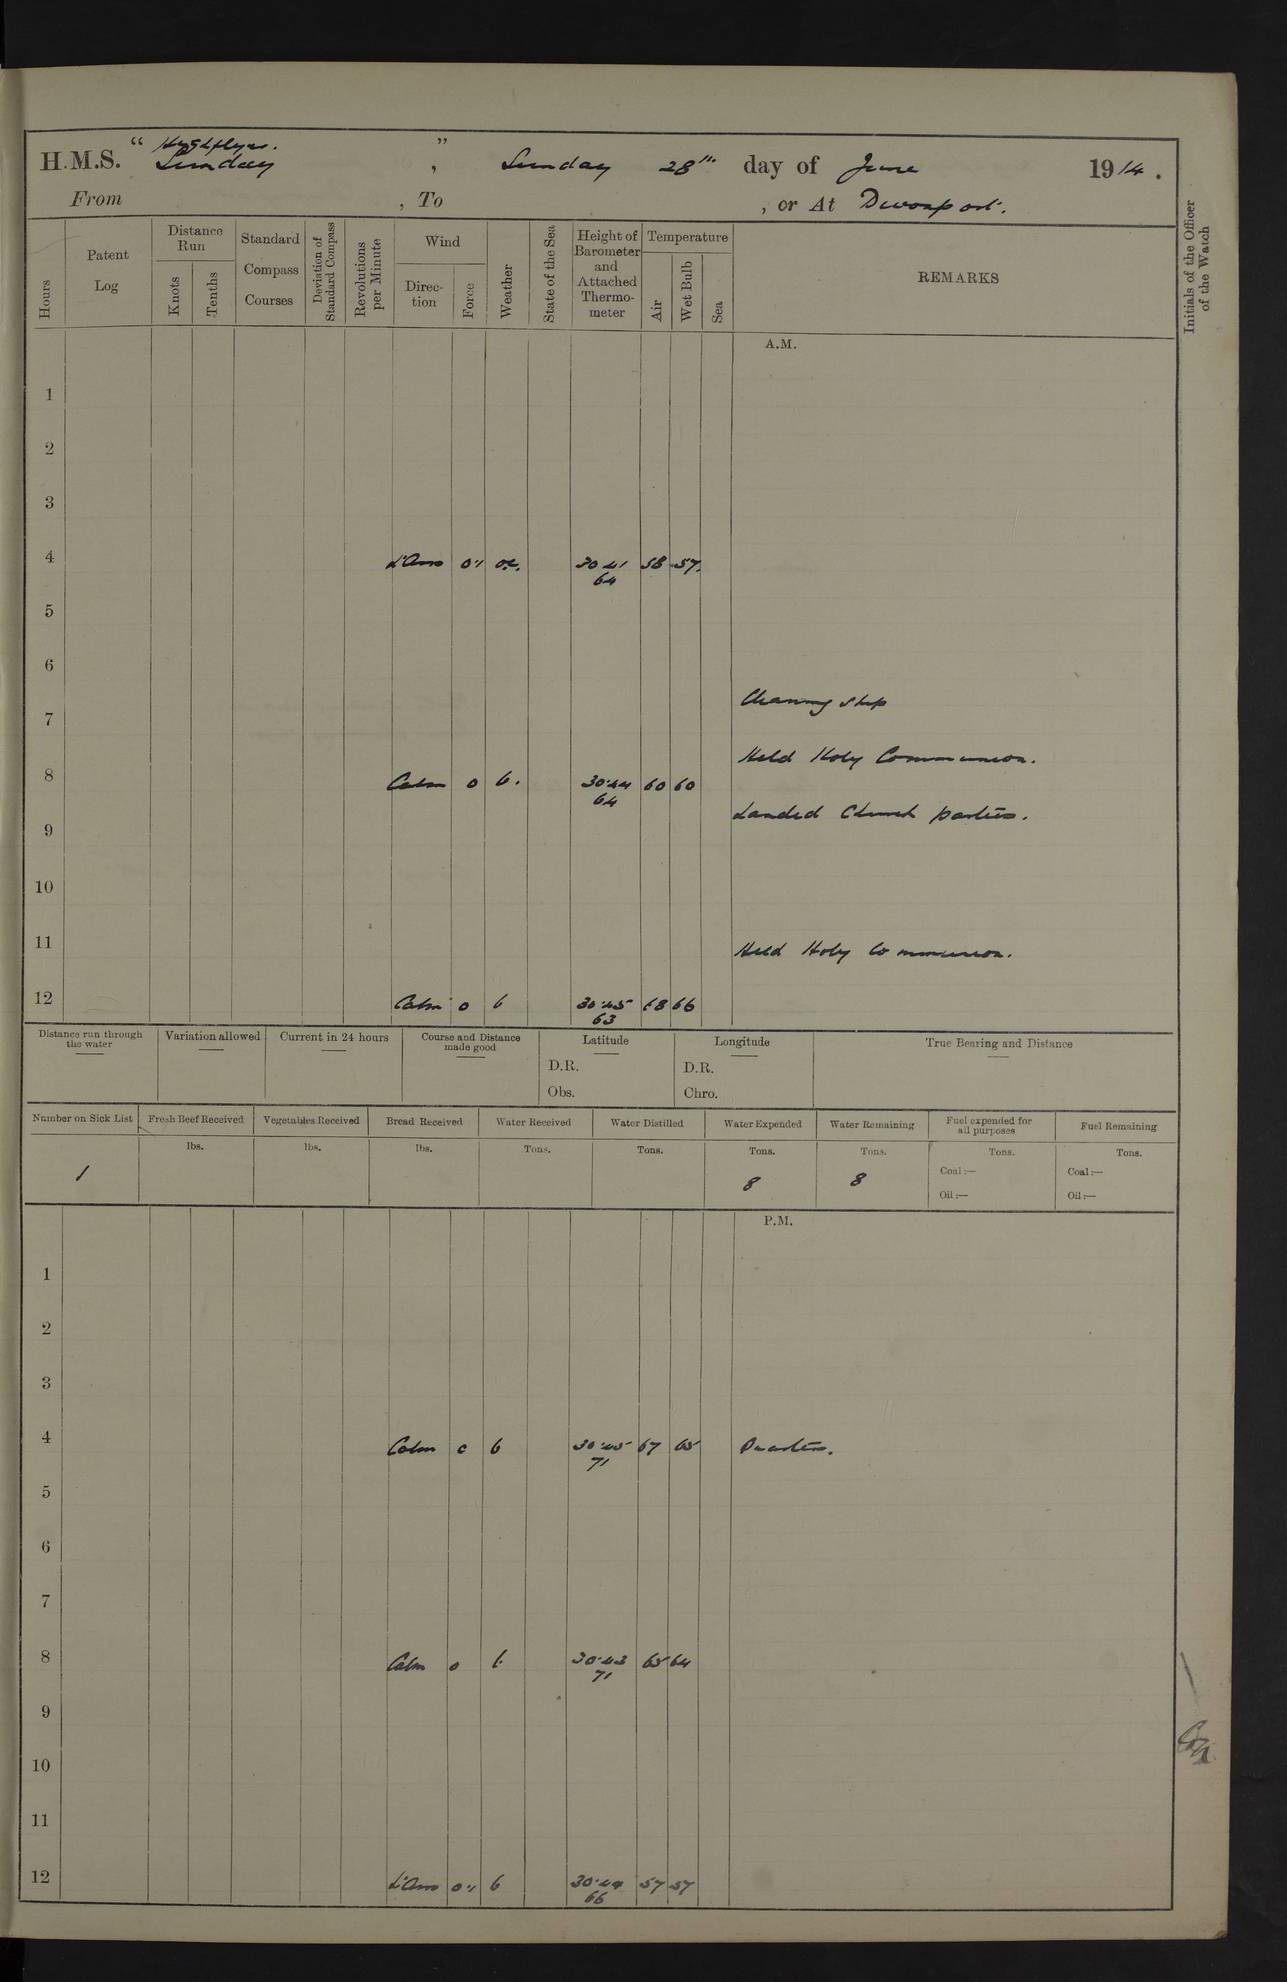 H.M.S. " Highflyer.
Sunday " , Sunday 28th day of June 1914.
From , To , or At Devonport.
Hours
Patent Log
Distance Run
Knots
Tenths
Standard Compass Courses
Deviation of Standard Compass
Revolutions per Minute
Wind
Direction
Force
Weather
State of the Sea
Height of Barometer and Attached Thermometer
Temperature
Air
Wet Bulb
Sea
REMARKS
Initials of the Officer of the Watch
A.M.
1
2
3
4 L'Airs 0.1 o.c. 30.41 58 57.
64
5
6
Cleaning ship
7
Held Holy Communion.
8 Calm 0 b. 30.44 60 60
64
Landed Church parties.
9
10
11 Held Holy Communion.
12 Calm 0 b 30.45 68 66
63
Distance run through the water
Variation allowed
Current in 24 hours
Course and Distance made good
Latitude
D.R.
Obs.
Longitude
D.R.
Chro.
True Bearing and Distance
Number on Sick List Fresh Beef Received Vegetables Received Bread Received Water Received Water Distilled Water Expended Water Remaining Fuel expended for all purposes Fuel Remaining
lbs. lbs. lbs. Tons. Tons. Tons. Tons. Tons. Tons.
Coal:— Coal:—
1 8 8
Oil:— Oil:—
P.M.
1
2
3
4 Calm 0 b 30.45 67 65 Quarters.
71
5
6
7
8 Calm 0 b 30.43 65 64
71
9
10
11
12 L'Airs 0.1 b 30.44 57 57
66